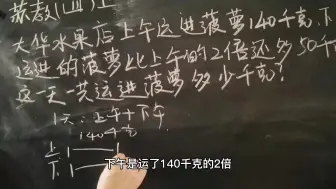 苏教(四)上
大华水果店上午运进菠萝140千克,下
运进的菠萝比上午的2倍还多50千
这一天一共运进菠萝多少千克?
1天:上午+下午
140千克
上
下
下午是运了140千克的2倍